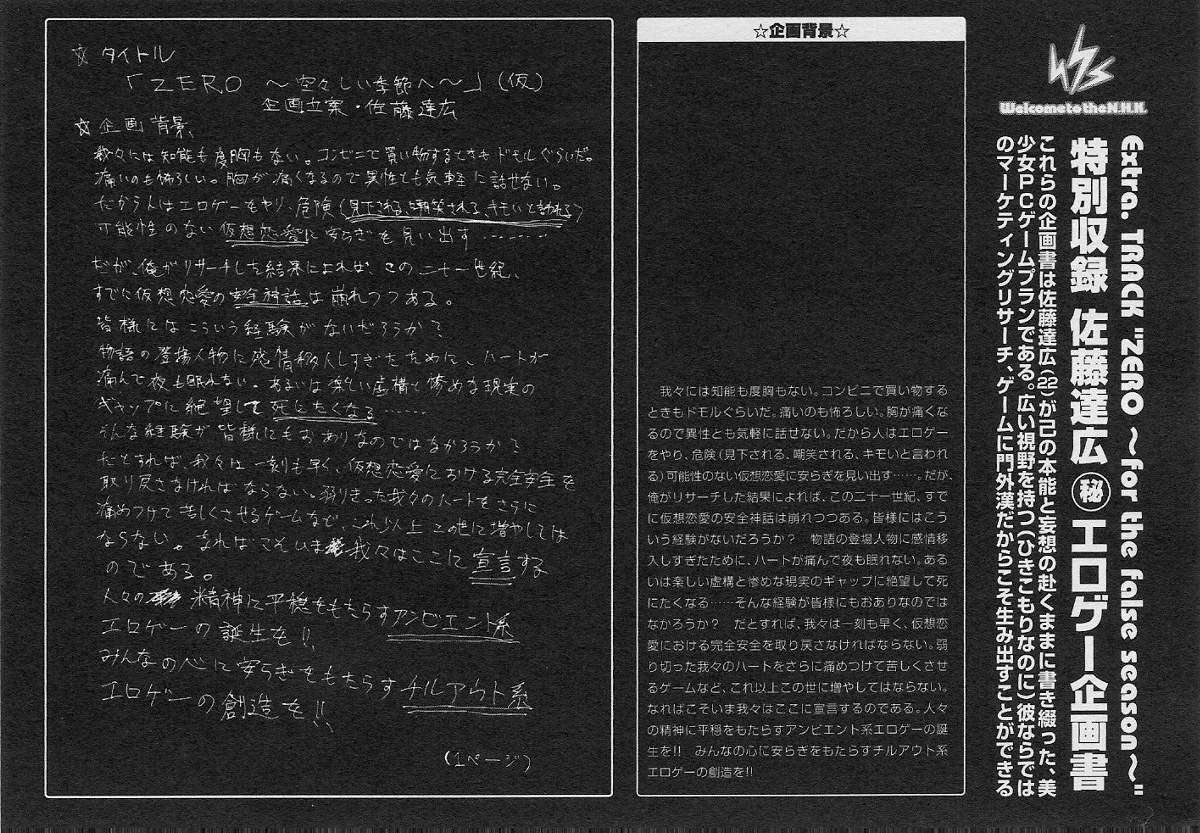 Welcome to the N.H.K.
Extra. TRACK "ZERO ～for the false season～"
特別収録 佐藤達広㊙エロゲー企画書
これらの企画書は佐藤達広(22)が己の本能と妄想の赴くままに書き綴った、美
少女PCゲームプランである。広い視野を持つ(ひきこもりなのに)彼ならでは
のマーケティングリサーチ、ゲームに門外漢だからこそ生み出すことができる
☆企画背景☆
我々には知能も度胸もない。コンビニで買い物する
ときもドモルぐらいだ。痛いのも怖ろしい。胸が痛くな
るので異性とも気軽に話せない。だから人はエロゲー
をやり、危険(見下される、嘲笑される、キモいと言われ
る)可能性のない仮想恋愛に安らぎを見い出す……。だが、
俺がリサーチした結果によれば、この二十一世紀、すで
に仮想恋愛の安全神話は崩れつつある。皆様にはこう
いう経験がないだろうか？　物語の登場人物に感情移
入しすぎたために、ハートが痛んで夜も眠れない。ある
いは楽しい虚構と惨めな現実のギャップに絶望して死
にたくなる……そんな経験が皆様にもおありなのでは
なかろうか？　だとすれば、我々は一刻も早く、仮想恋
愛における完全安全を取り戻さなければならない。弱
り切った我々のハートをさらに痛めつけて苦しくさせ
るゲームなど、これ以上この世に増やしてはならない。
なればこそいま我々はここに宣言するのである。人々
の精神に平穏をもたらすアンビエント系エロゲーの誕
生を!!　みんなの心に安らぎをもたらすチルアウト系
エロゲーの創造を!!
☆ タイトル
「ZERO ～空々しい季節へ～」(仮)
企画立案・佐藤達広
☆ 企画背景、
我々には知能も度胸もない。コンビニで買い物するときもドモルぐらいだ。
痛いのも怖ろしい。胸が痛くなるので異性とも気軽に話せない。
だから人はエロゲーをヤリ、危険(見下される、嘲笑される、キモいと言われる)
可能性のない仮想恋愛に安らぎを見い出す………
だが、俺がリサーチした結果によれば、この二十一世紀、
すでに仮想恋愛の安全神話は崩れつつある。
皆様にはこういう経験がないだろうか？
物語の登場人物に感情移入しすぎたために、ハートが
痛んで夜も眠れない。あるいは楽しい虚構と惨めな現実の
ギャップに絶望して死にたくなる……
そんな経験が皆様にもおありなのではなかろうか？
だとすれば、我々は一刻も早く、仮想恋愛における完全安全を
取り戻さなければならない。弱りきった我々のハートをさらに
痛めつけて苦しくさせるゲームなど、これ以上この世に増やしては
ならない。なればこそいま我々はここに宣言する
のである。
人々の精神に平穏をもたらすアンビエント系
エロゲーの誕生を!!
みんなの心に安らぎをもたらすチルアウト系
エロゲーの創造を!!
(1ページ)